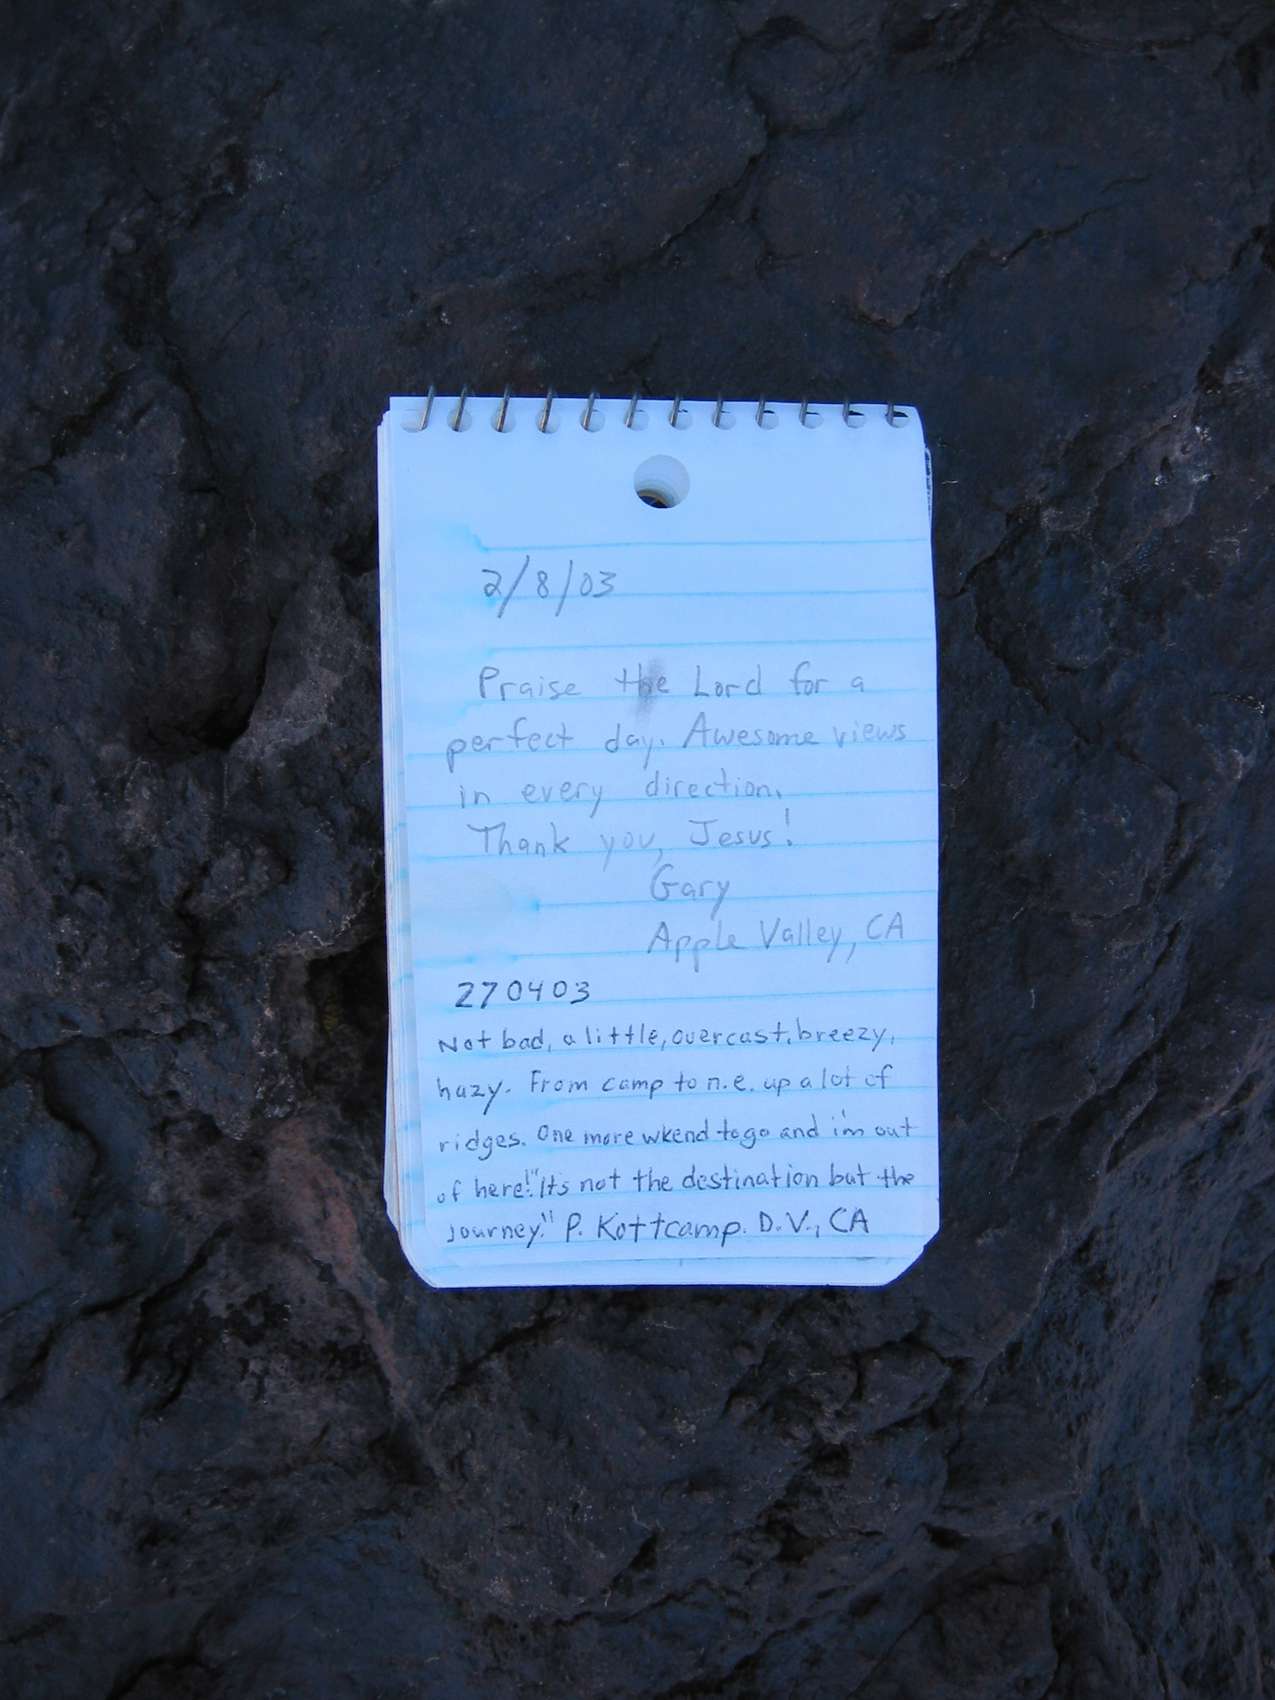 2/8/03
Praise the Lord for a
perfect day. Awesome views
in every direction.
Thank you, Jesus!
Gary
Apple Valley, CA
270403
Not bad, a little, overcast, breezy,
hazy. From camp to n.e. up a lot of
ridges. One more wkend to go and i'm out
of here! "It's not the destination but the
journey." P. Kottcamp. D.V., CA